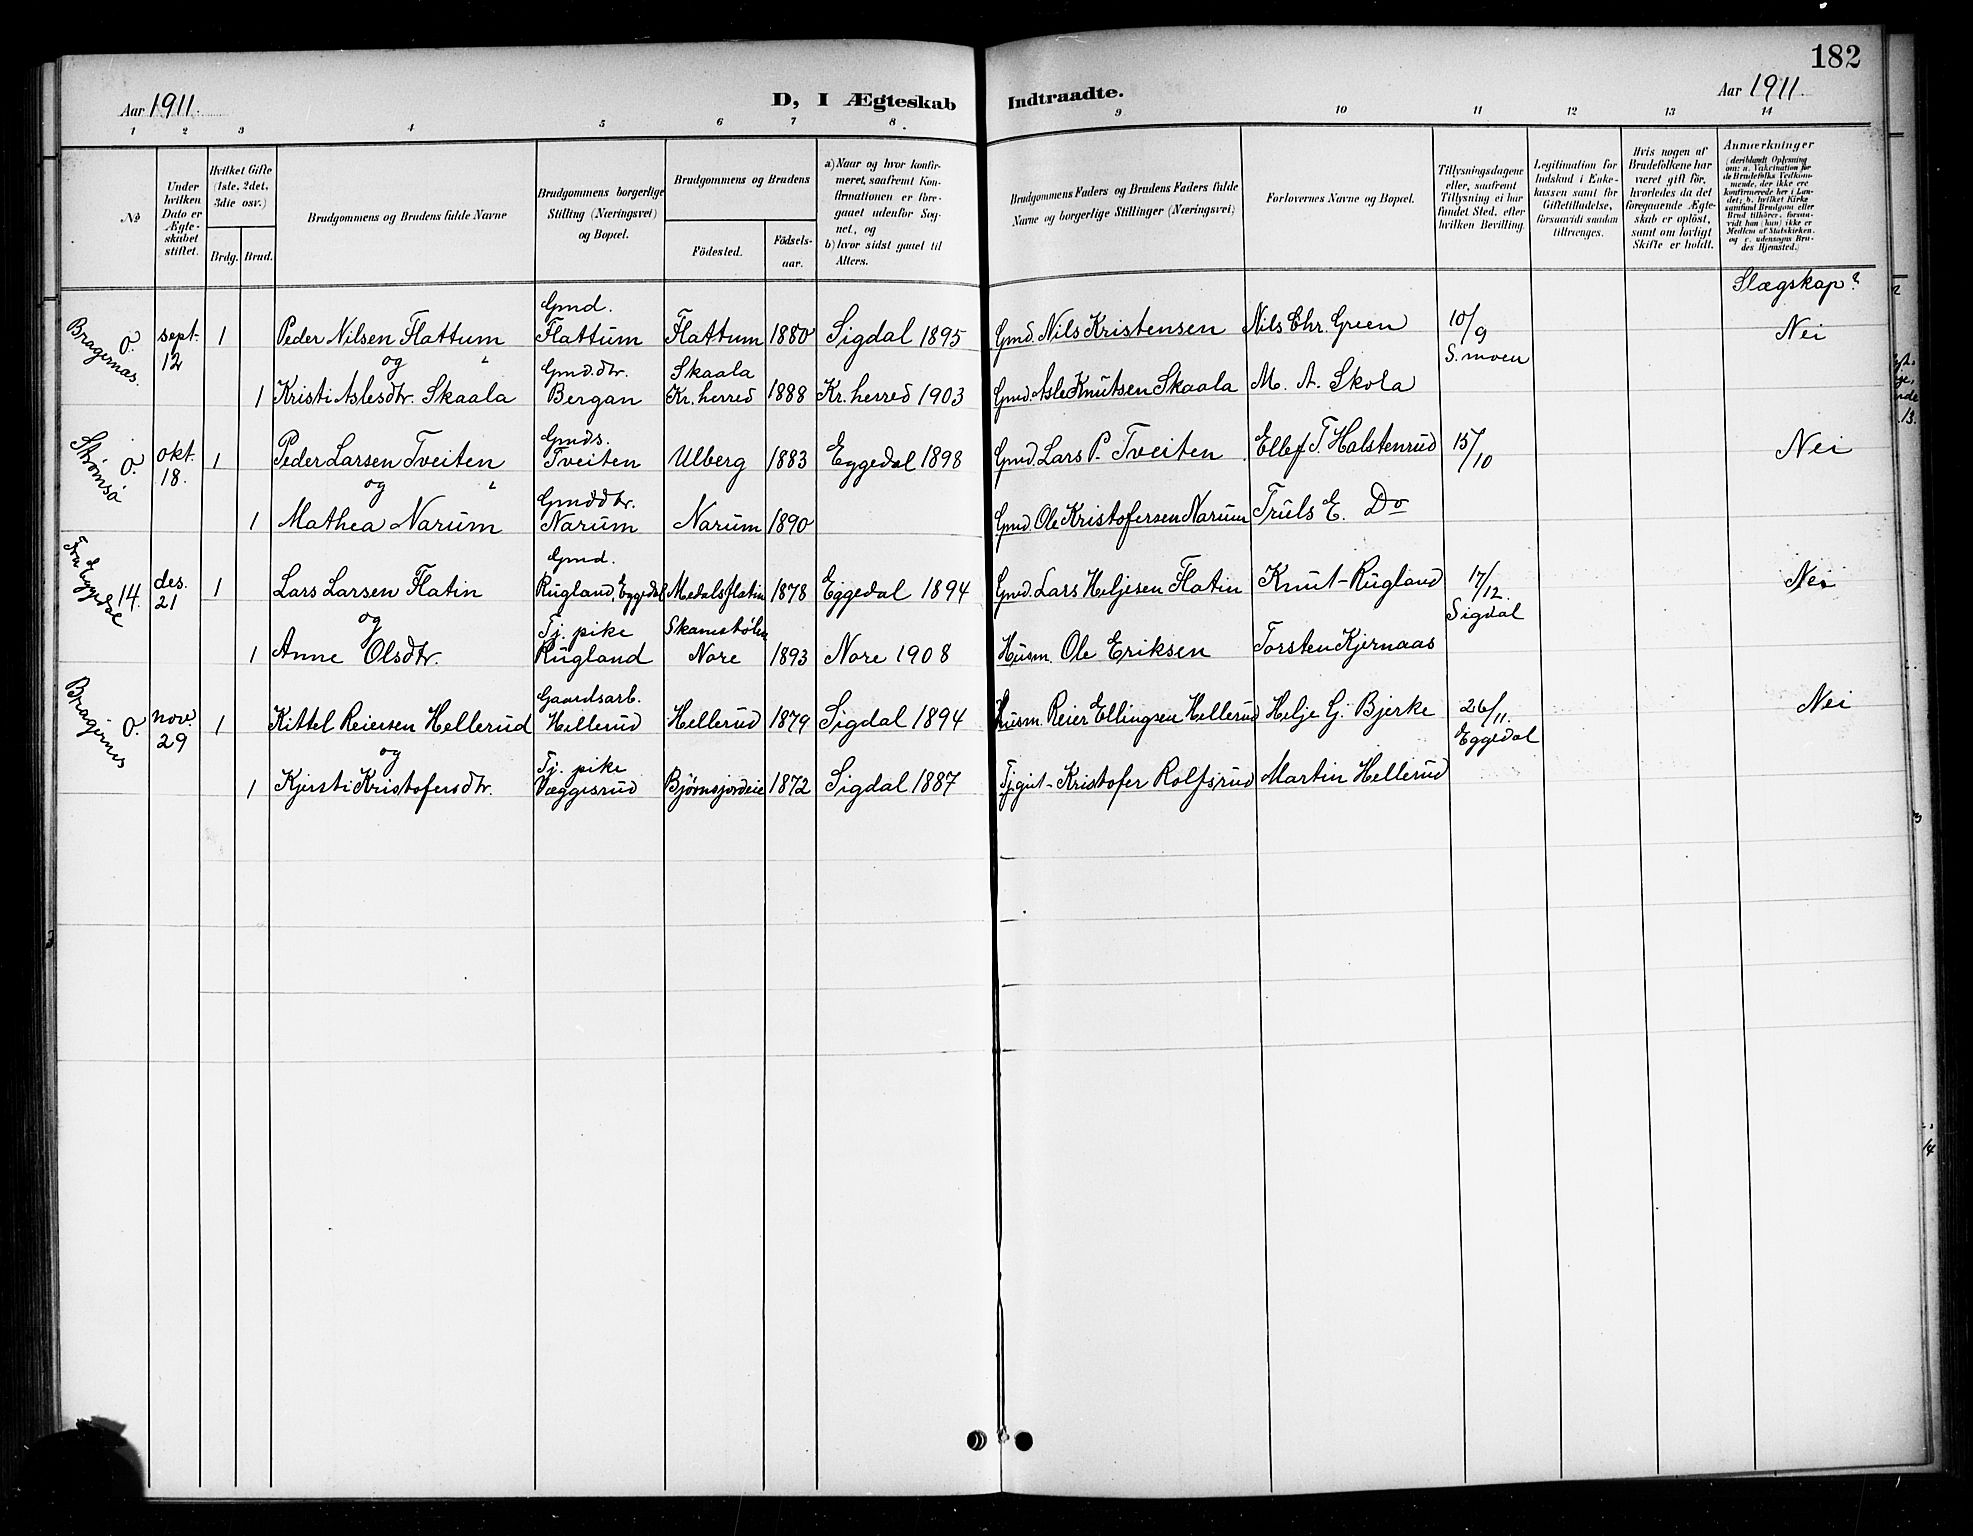 182
Aar 1911.
D, I Ægteskab Indtraadte.
Aar 1911.
1 2 3 4 5 6 7 8. 9 10 11 12 13 14
No
Under hvilken Dato er Ægteskabet stiftet.
Hvilket Gifte (1ste, 2det, 3die osv.)
Brdg. Brud.
Brudgommens og Brudens fulde Navne
Brudgommens borgerlige Stilling (Næringsvei) og Bopæl.
Brudgommens og Brudens
Födested.
Födsels-aar.
a) Naar og hvor konfirmeret, saafremt Konfirmationen er foregaaet udenfor Sognet, og
b) hvor sidst gaaet til Alters.
Brudgommens Faders og Brudens Faders fulde Navne og borgerlige Stillinger (Næringsvei)
Forlovernes Navne og Bopæl.
Tillysningsdagene eller, saafremt Tillysning ei har fundet Sted, efter hvilken Bevilling.
Legitimation for Indskud i Enkekassen samt for Giftetilladelse, forsaavidt saadan tiltrænges.
Hvis nogen af Brudefolkene har været gift før, hvorledes da det foregaaende Ægteskab er oplöst, samt om lovligt Skifte er holdt.
Anmærkninger
(deriblandt Oplysning om: a. Vakcination for de Brudefolks Vedkommende, der ikke ere konfirmerede her i Landet; b. hvilket Kirkesamfund Brudgom eller Brud tilhörer, forsaavidt han (hun) ikke er Medlem af Statskirken, og c. udensogns Brudes Hjemsted.)
Slægskap?
Bragernas. O. sept. 12 1 Peder Nilsen Flattum Gmd. Flattum Flattum 1880 Sigdal 1895 Gmd. Nils Kristensen Nils Chr. Green 10/9 S. moen Nei
og
1 Kristi Aslesdtr. Skaala Gmd.dtr. Bergan Skaala Kr. herred 1888 Kr. herred 1903 Gmd. Asle Knutsen Skaala M. A. Skola
Strömsö O. okt. 18. 1 Peder Larsen Tveiten Gmds. Tveiten Ulberg 1883 Eggedal 1898 Gmd. Lars P. Tveiten Ellef T. Halstenrud 15/10 Nei
og
1 Mathea Narum Gmddtr. Narum Narum 1890 Gmd. Ole Kristofersen Narum Truls E. Do
Fra Eggedal 14. des. 21 1 Lars Larsen Flatin Gmd. Rugland, Eggedal Medalsflatin 1878 Eggedal 1894 Gmd. Lars Heljesen Flatin Knut Rugland 17/12. Sigdal Nei
og
1 Anne Olsdtr. Tj. pike Rugland Nore 1893 Nore 1908 Husm. Ole Eriksen Torsten Kjernaas
Bragernes O. nov. 29 1 Kittel Reiersen Hellerud Gaardsarb. Hellerud Hellerud 1879 Sigdal 1894 Husm. Reier Ellingsen Hellerud Helje G. Bjerke 26/11. Eggedal Nei
og
1 Kjersti Kristofersdtr. Tj. pike Væggisrud Björnsjordeie 1872 Sigdal 1887 Tj.gut Kristofer Rolfsrud Martin Hellerud